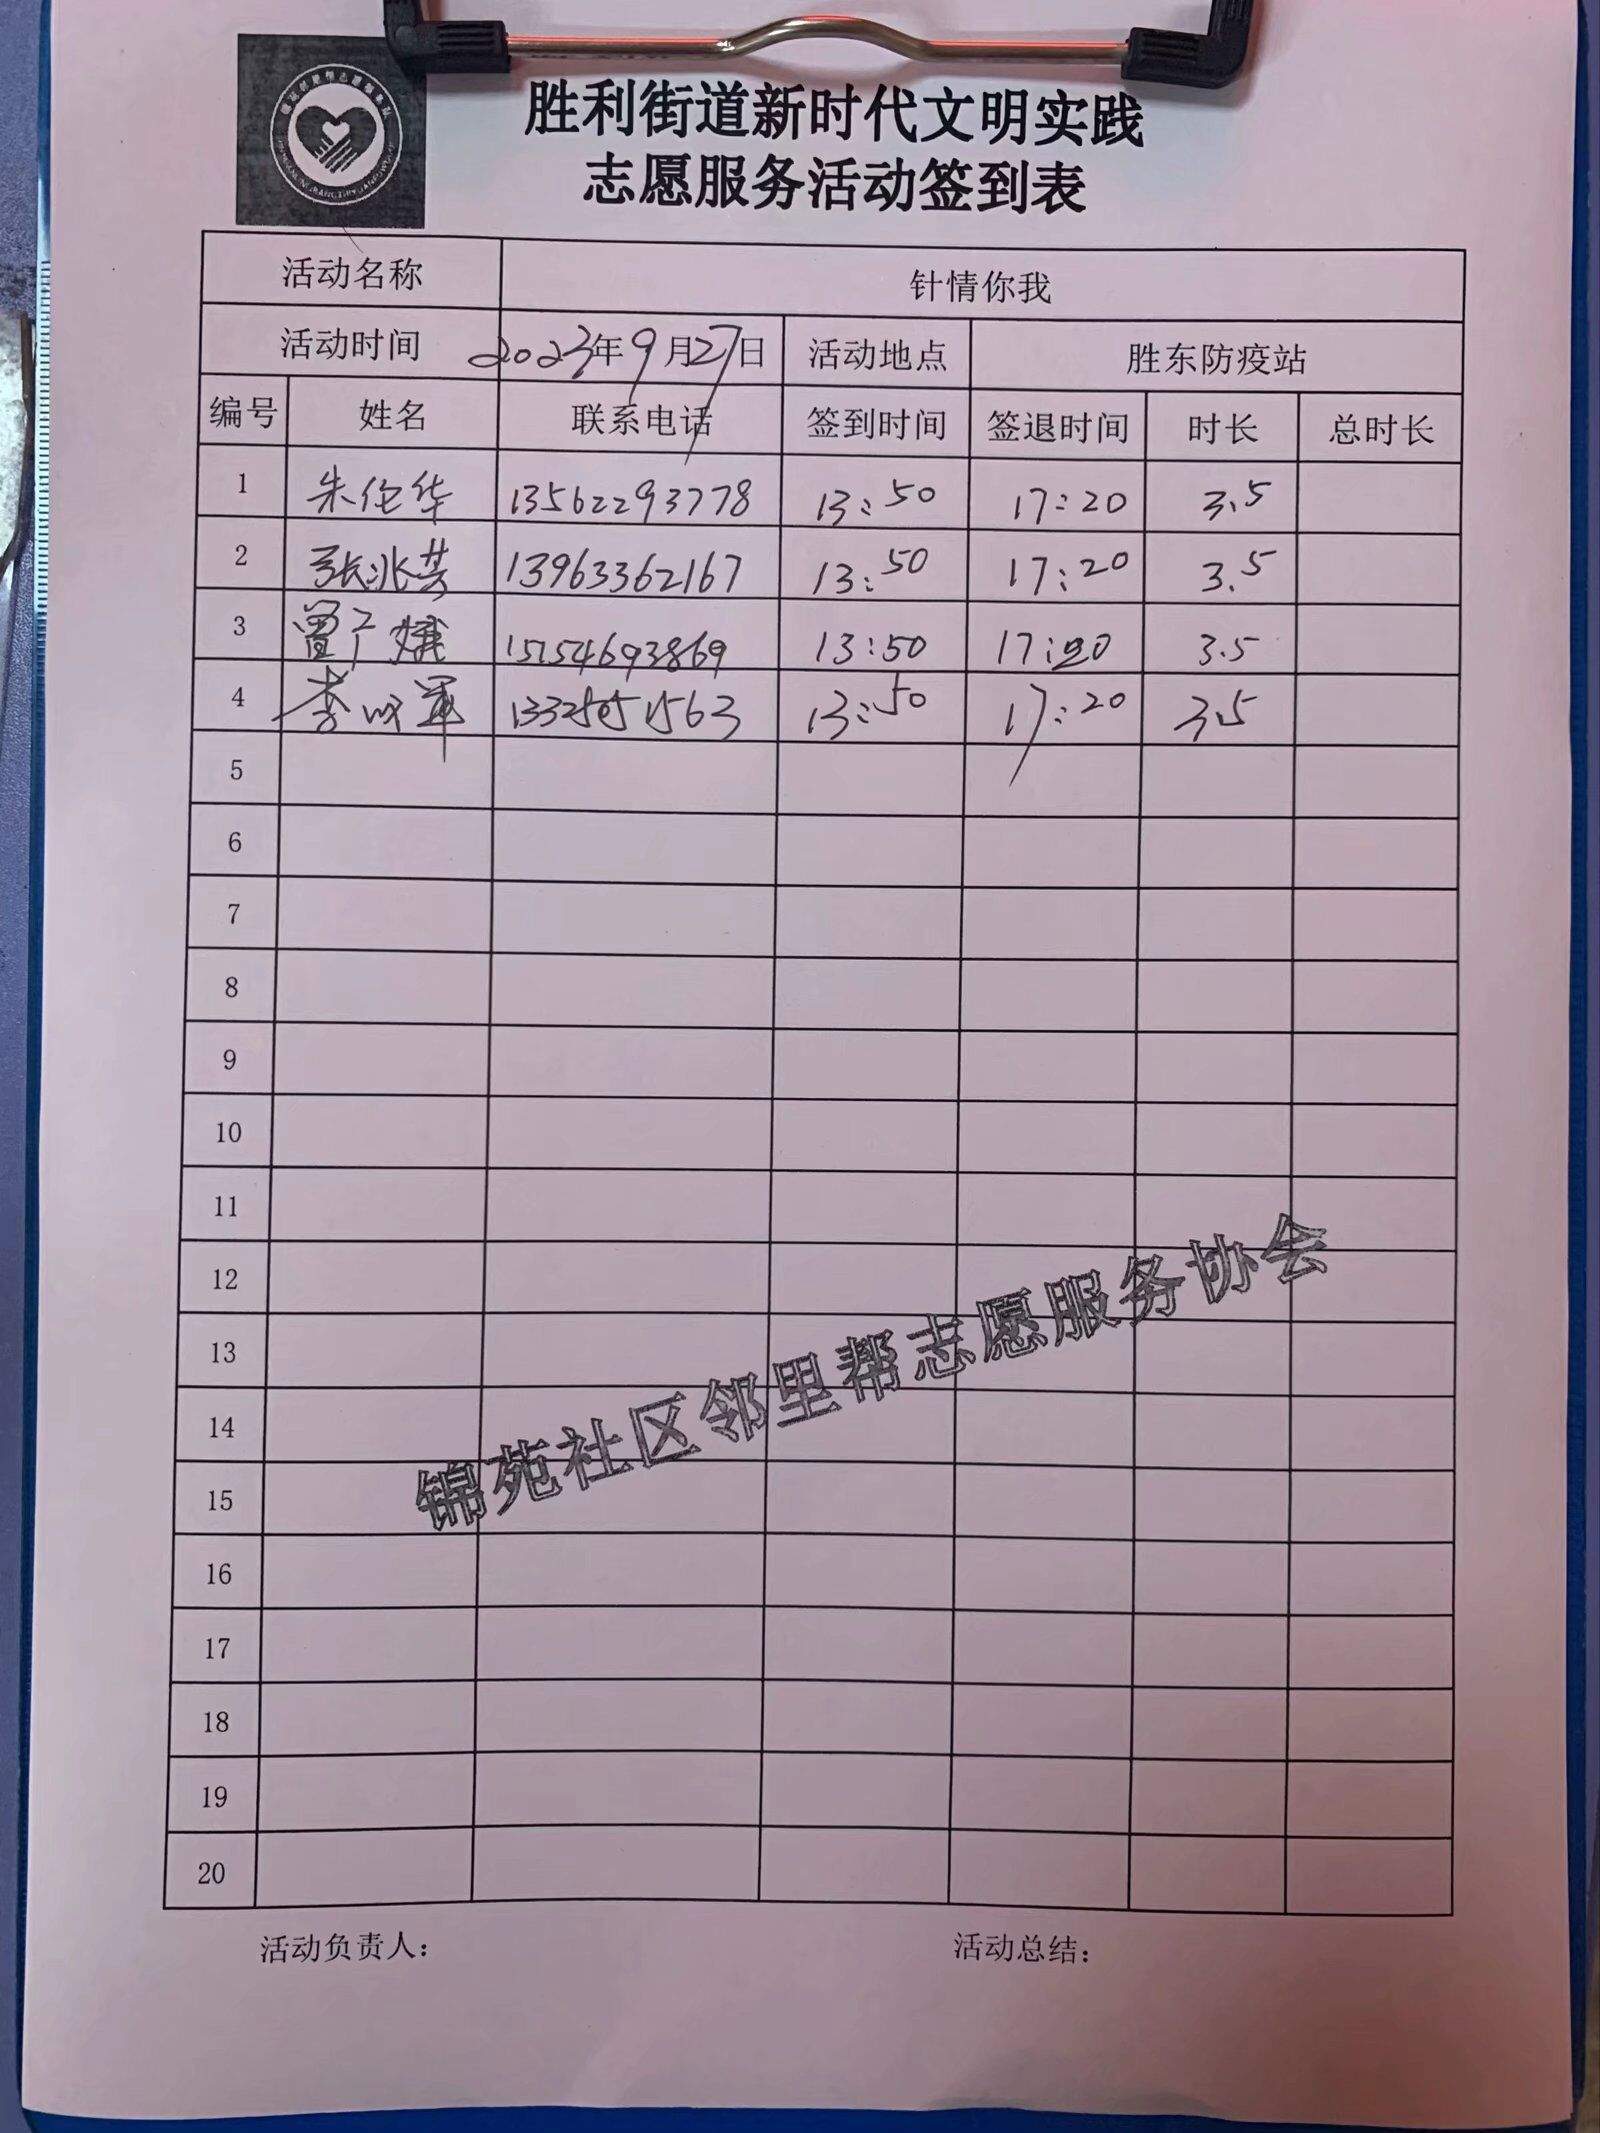 胜利街道新时代文明实践
志愿服务活动签到表
活动名称 针情你我
活动时间 2023年9月27日 活动地点 胜东防疫站
编号 姓名 联系电话 签到时间 签退时间 时长 总时长
1 朱伦华 13562293778 13:50 17:20 3.5
2 张兆芸 13963362167 13:50 17:20 3.5
3 曹广娥 15154693869 13:50 17:20 3.5
4 李 军 13:50 17:20 3.5
5
6
7
8
9
10
11
12
13
14
15
16
17
18
19
20
锦苑社区邻里帮志愿服务协会
活动负责人: 活动总结: